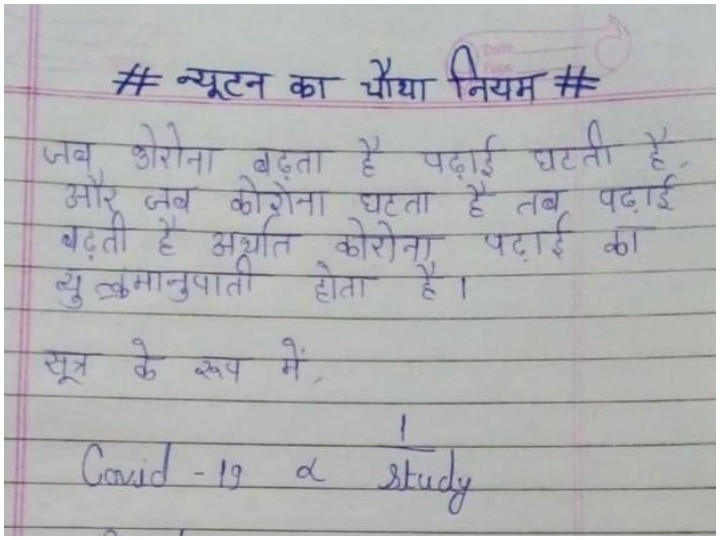 # न्यूटन का चौथा नियम #
जब कोरोना बढ़ता है पढ़ाई घटती है,
और जब कोरोना घटता है तब पढ़ाई
बढ़ती है अर्थात कोरोना पढ़ाई का
व्युत्क्रमानुपाती होता है।
सूत्र के रूप में,
1
Covid - 19 α study